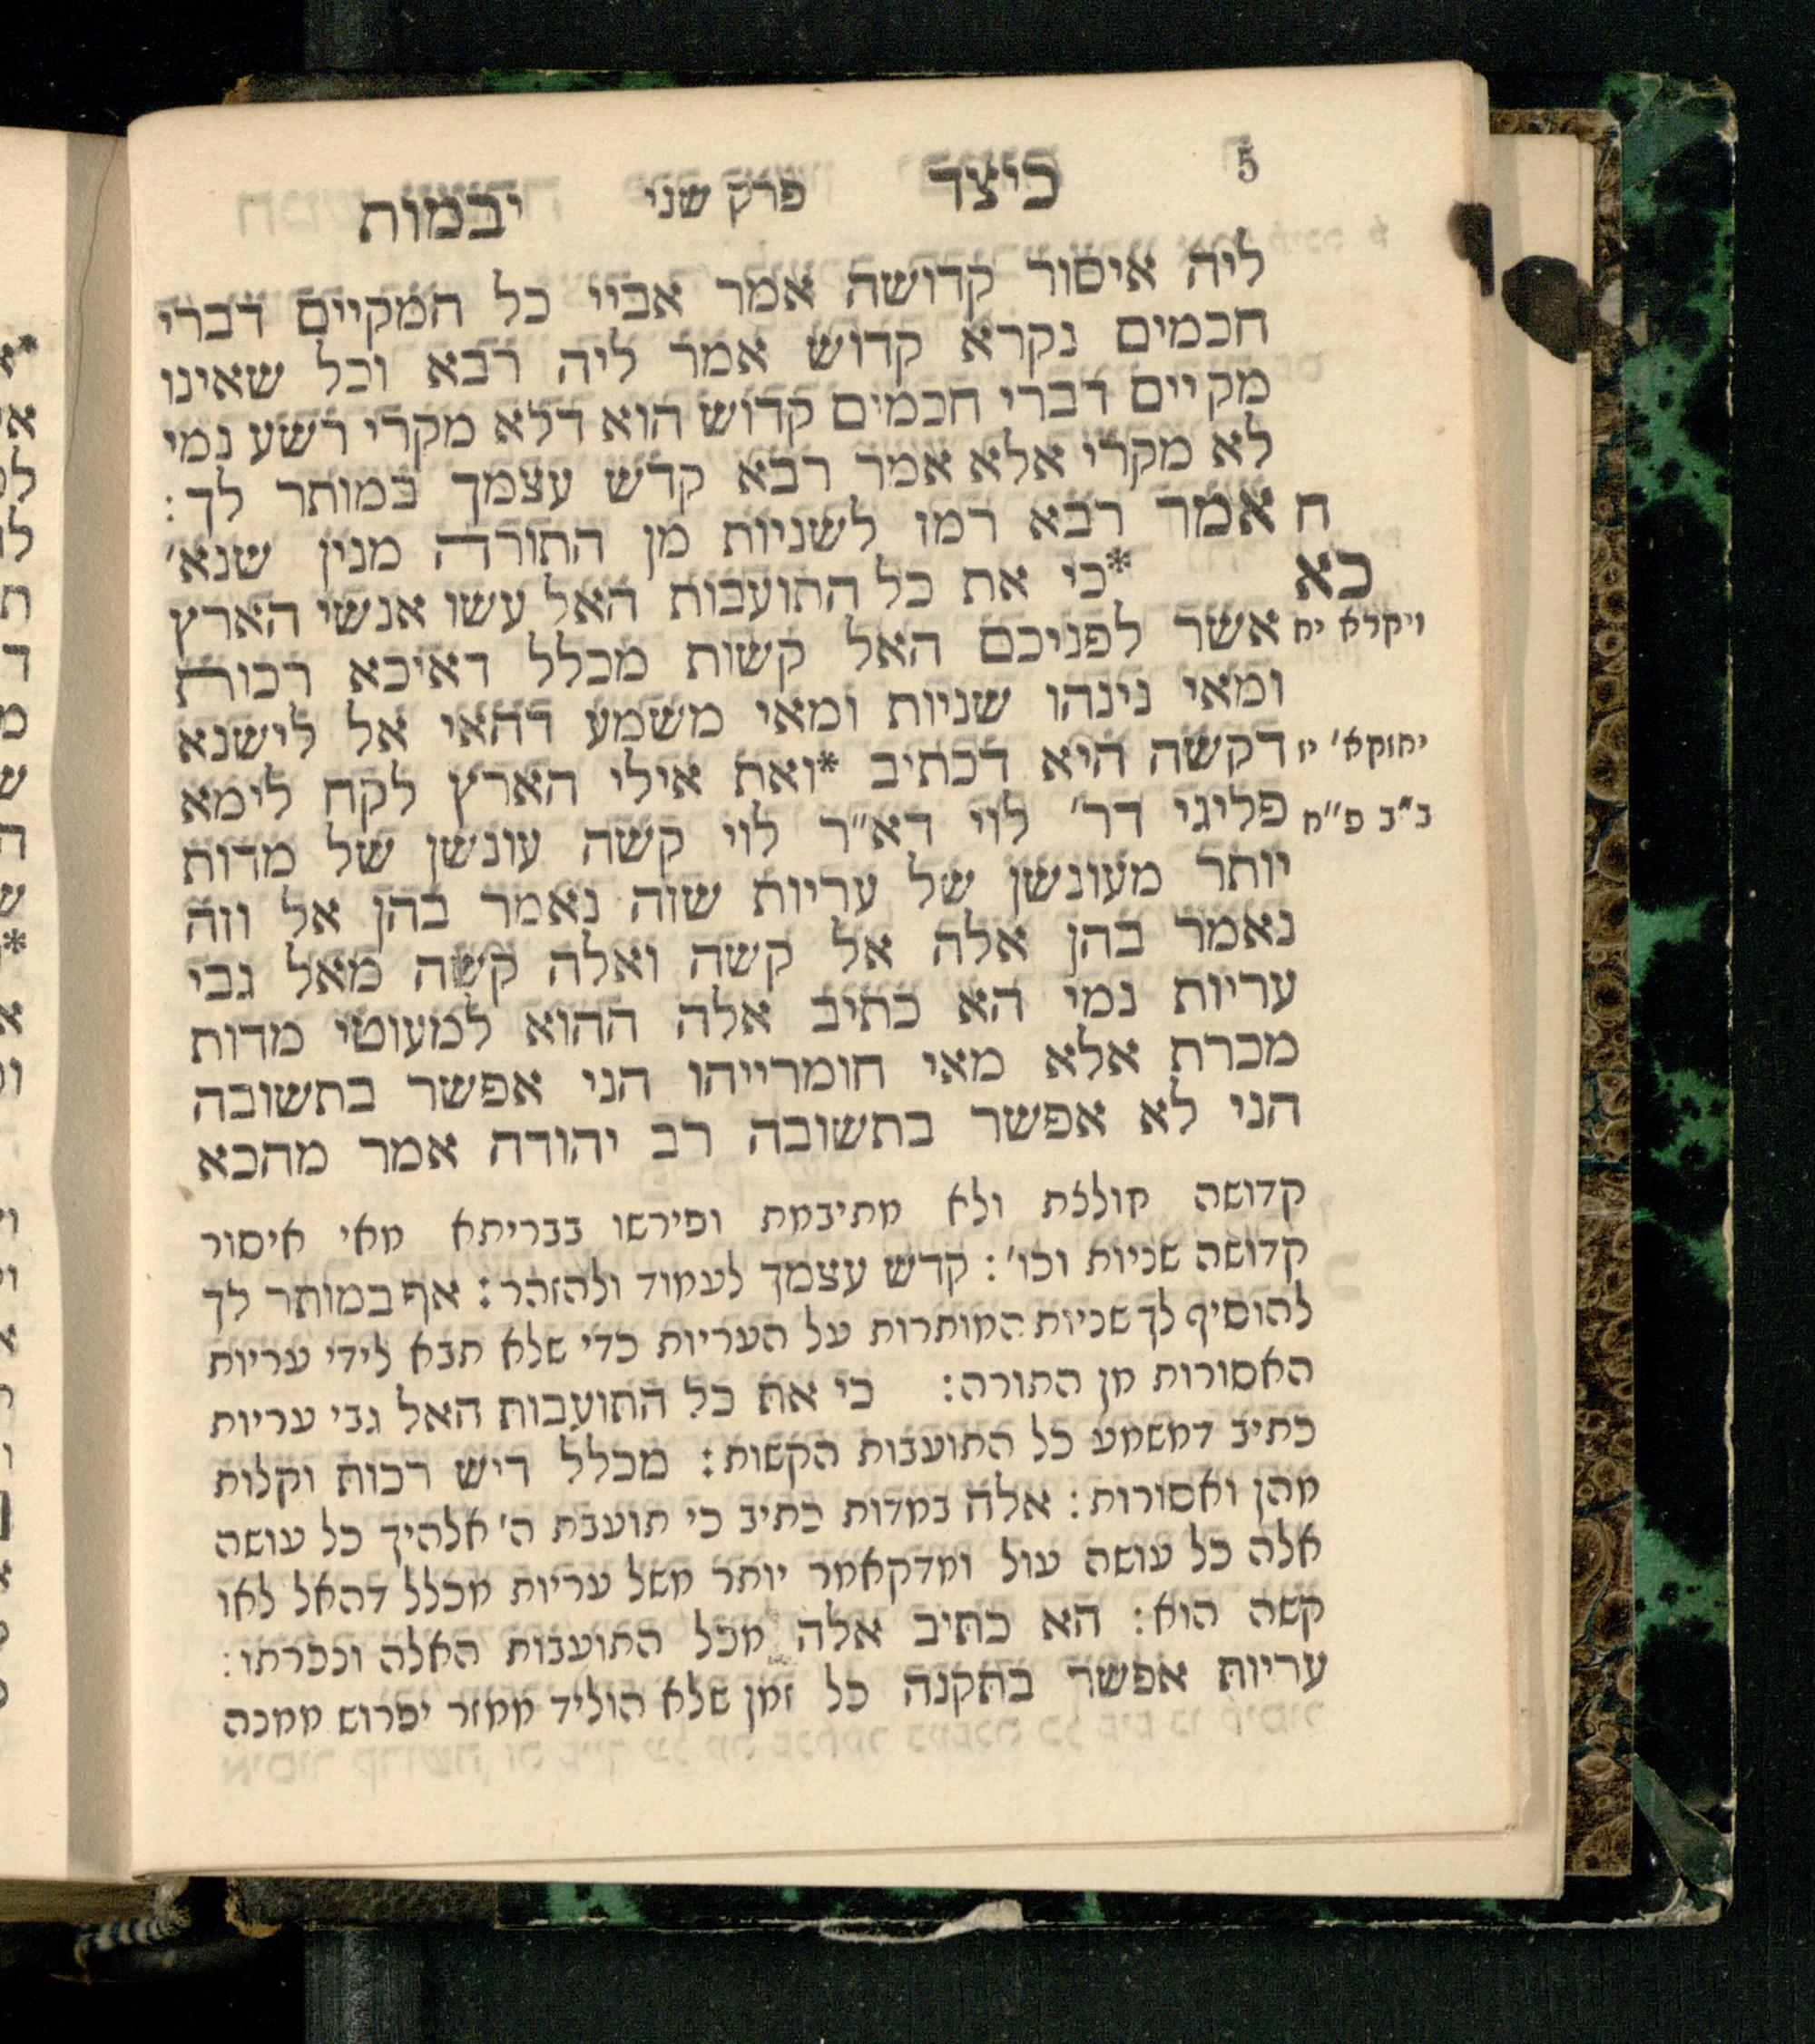 5 כיצד פרק שני יבמות
ליה איסור קדושה אמר אביי כל המקיים דברי
חכמים נקרא קדוש אמר ליה רבא וכל שאינו
מקיים דברי חכמים קדוש הוא דלא מקרי רשע נמי
לא מקרי אלא אמר רבא קדש עצמך במותר לך:
ח אמר רבא רמז לשניות מן התורה מנין שנא׳
כא *כי את כל התועבות האל עשו אנשי הארץ
ויקרא יח אשר לפניכם האל קשות מכלל דאיכא רכות
ומאי נינהו שניות ומאי משמע דהאי אל לישנא
יחזקא׳ יז דקשה היא דכתיב *ואת אילי הארץ לקח לימא
ב״ב פ״ח פליגי דר׳ לוי דא״ר לוי קשה עונשן של מדות
יותר מעונשן של עריות שזה נאמר בהן אל וזה
נאמר בהן אלה אל קשה ואלה קשה מאל גבי
עריות נמי הא כתיב אלה ההוא למעוטי מדות
מכרת אלא מאי חומרייהו הני אפשר בתשובה
הני לא אפשר בתשובה רב יהודה אמר מהכא
קדושה חולצת ולא מתיבמת ופירשו בבריתא מאי איסור
קדושה שניות וכו׳: קדש עצמך לעמוד ולהזהר: אף במותר לך
להוסיף לך שניות המותרות על העריות כדי שלא תבא לידי עריות
האסורות מן התורה: כי את כל התועבות האל גבי עריות
כתיב דמשמע כל התועבות הקשות: מכלל דיש רכות וקלות
מהן ואסורות: אלה במדות כתיב כי תועבת ה׳ אלהיך כל עושה
אלה כל עושה עול ומדקאמר יותר משל עריות מכלל דהאל לאו
קשה הוא: הא כתיב אלה מכל התועבות האלה ונכרתו:
עריות אפשר בתקנה כל זמן שלא הוליד ממזר יפרוש ממנה